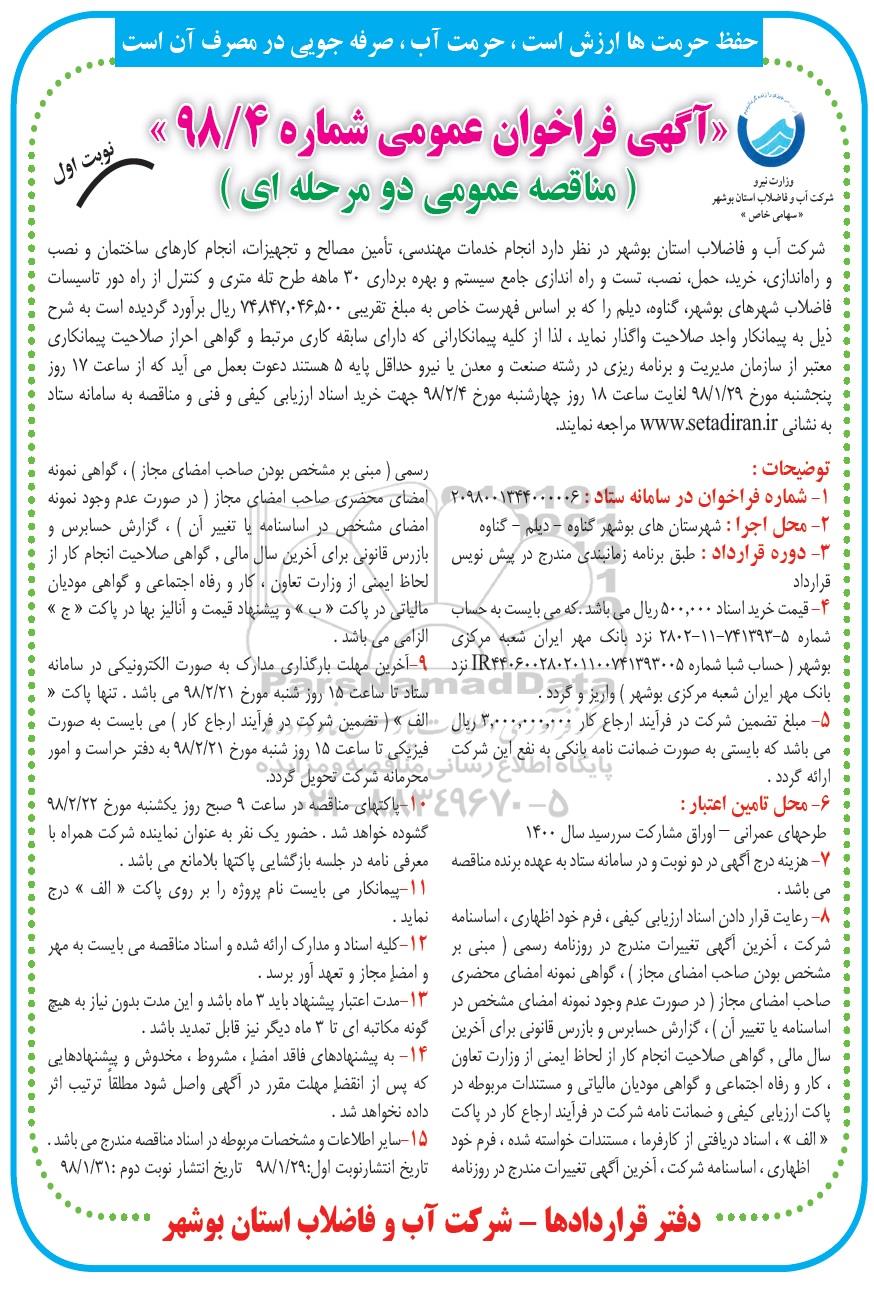 حفظ حرمت ها ارزش است ، حرمت آب ، صرفه جویی در مصرف آن است
«آگهی فراخوان عمومی شماره ۹۸/۴ »
( مناقصه عمومی دو مرحله ای )
نوبت اول
وزارت نیرو
شرکت آب و فاضلاب استان بوشهر
« سهامی خاص »
شرکت آب و فاضلاب استان بوشهر در نظر دارد انجام خدمات مهندسی، تأمین مصالح و تجهیزات، انجام کارهای ساختمان و نصب
و راه‌اندازی، خرید، حمل، نصب، تست و راه اندازی جامع سیستم و بهره برداری ۳۰ ماهه طرح تله متری و کنترل از راه دور تاسیسات
فاضلاب شهرهای بوشهر، گناوه، دیلم را که بر اساس فهرست خاص به مبلغ تقریبی ۷۴,۸۴۷,۰۴۶,۵۰۰ ریال برآورد گردیده است به شرح
ذیل به پیمانکار واجد صلاحیت واگذار نماید ، لذا از کلیه پیمانکارانی که دارای سابقه کاری مرتبط و گواهی احراز صلاحیت پیمانکاری
معتبر از سازمان مدیریت و برنامه ریزی در رشته صنعت و معدن یا نیرو حداقل پایه ۵ هستند دعوت بعمل می آید که از ساعت ۱۷ روز
پنجشنبه مورخ ۹۸/۱/۲۹ لغایت ساعت ۱۸ روز چهارشنبه مورخ ۹۸/۲/۴ جهت خرید اسناد ارزیابی کیفی و فنی و مناقصه به سامانه ستاد
به نشانی www.setadiran.ir مراجعه نمایند.
توضیحات :
۱- شماره فراخوان در سامانه ستاد : ۲۰۹۸۰۰۱۳۴۴۰۰۰۰۰۶
۲- محل اجرا : شهرستان های بوشهر گناوه - دیلم - گناوه
۳- دوره قرارداد : طبق برنامه زمانبندی مندرج در پیش نویس
قرارداد
۴- قیمت خرید اسناد ۵۰۰,۰۰۰ ریال می باشد .که می بایست به حساب
شماره ۵-۷۴۱۳۹۳-۱۱-۲۸۰۲ نزد بانک مهر ایران شعبه مرکزی
بوشهر ( حساب شبا شماره IR۴۴۰۶۰۰۲۸۰۲۰۱۱۰۰۷۴۱۳۹۳۰۰۵ نزد
بانک مهر ایران شعبه مرکزی بوشهر ) واریز و گردد .
۵- مبلغ تضمین شرکت در فرآیند ارجاع کار ۳,۰۰۰,۰۰۰,۰۰۰ ریال
می باشد که بایستی به صورت ضمانت نامه بانکی به نفع این شرکت
ارائه گردد .
۶- محل تامین اعتبار :
طرحهای عمرانی – اوراق مشارکت سررسید سال ۱۴۰۰
۷- هزینه درج آگهی در دو نوبت و در سامانه ستاد به عهده برنده مناقصه
می باشد .
۸- رعایت قرار دادن اسناد ارزیابی کیفی ، فرم خود اظهاری ، اساسنامه
شرکت ، آخرین آگهی تغییرات مندرج در روزنامه رسمی ( مبنی بر
مشخص بودن صاحب امضای مجاز ) ، گواهی نمونه امضای محضری
صاحب امضای مجاز ( در صورت عدم وجود نمونه امضای مشخص در
اساسنامه یا تغییر آن ) ، گزارش حسابرس و بازرس قانونی برای آخرین
سال مالی , گواهی صلاحیت انجام کار از لحاظ ایمنی از وزارت تعاون
، کار و رفاه اجتماعی و گواهی مودیان مالیاتی و مستندات مربوطه در
پاکت ارزیابی کیفی و ضمانت نامه شرکت در فرآیند ارجاع کار در پاکت
« الف » ، اسناد دریافتی از کارفرما ، مستندات خواسته شده ، فرم خود
اظهاری ، اساسنامه شرکت ، آخرین آگهی تغییرات مندرج در روزنامه
رسمی ( مبنی بر مشخص بودن صاحب امضای مجاز ) ، گواهی نمونه
امضای محضری صاحب امضای مجاز ( در صورت عدم وجود نمونه
امضای مشخص در اساسنامه یا تغییر آن ) ، گزارش حسابرس و
بازرس قانونی برای آخرین سال مالی , گواهی صلاحیت انجام کار از
لحاظ ایمنی از وزارت تعاون ، کار و رفاه اجتماعی و گواهی مودیان
مالیاتی در پاکت « ب » و پیشنهاد قیمت و آنالیز بها در پاکت « ج »
الزامی می باشد .
۹-آخرین مهلت بارگذاری مدارک به صورت الکترونیکی در سامانه
ستاد تا ساعت ۱۵ روز شنبه مورخ ۹۸/۲/۲۱ می باشد . تنها پاکت «
الف » ( تضمین شرکت در فرآیند ارجاع کار ) می بایست به صورت
فیزیکی تا ساعت ۱۵ روز شنبه مورخ ۹۸/۲/۲۱ به دفتر حراست و امور
محرمانه شرکت تحویل گردد.
۱۰-پاکتهای مناقصه در ساعت ۹ صبح روز یکشنبه مورخ ۹۸/۲/۲۲
گشوده خواهد شد . حضور یک نفر به عنوان نماینده شرکت همراه با
معرفی نامه در جلسه بازگشایی پاکتها بلامانع می باشد .
۱۱-پیمانکار می بایست نام پروژه را بر روی پاکت « الف » درج
نماید .
۱۲-کلیه اسناد و مدارک ارائه شده و اسناد مناقصه می بایست به مهر
و امضاء مجاز و تعهد آور برسد .
۱۳-مدت اعتبار پیشنهاد باید ۳ ماه باشد و این مدت بدون نیاز به هیچ
گونه مکاتبه ای تا ۳ ماه دیگر نیز قابل تمدید باشد .
۱۴- به پیشنهادهای فاقد امضاء ، مشروط ، مخدوش و پیشنهادهایی
که پس از انقضاء مهلت مقرر در آگهی واصل شود مطلقاً ترتیب اثر
داده نخواهد شد .
۱۵-سایر اطلاعات و مشخصات مربوطه در اسناد مناقصه مندرج می باشد .
تاریخ انتشارنوبت اول:۹۸/۱/۲۹ تاریخ انتشار نوبت دوم :۹۸/۱/۳۱
دفتر قراردادها – شرکت آب و فاضلاب استان بوشهر
ParsNamadData
پایگاه اطلاع رسانی مناقصه و مزایده
۰۲۱-۸۸۳۴۹۶۷۰-۵